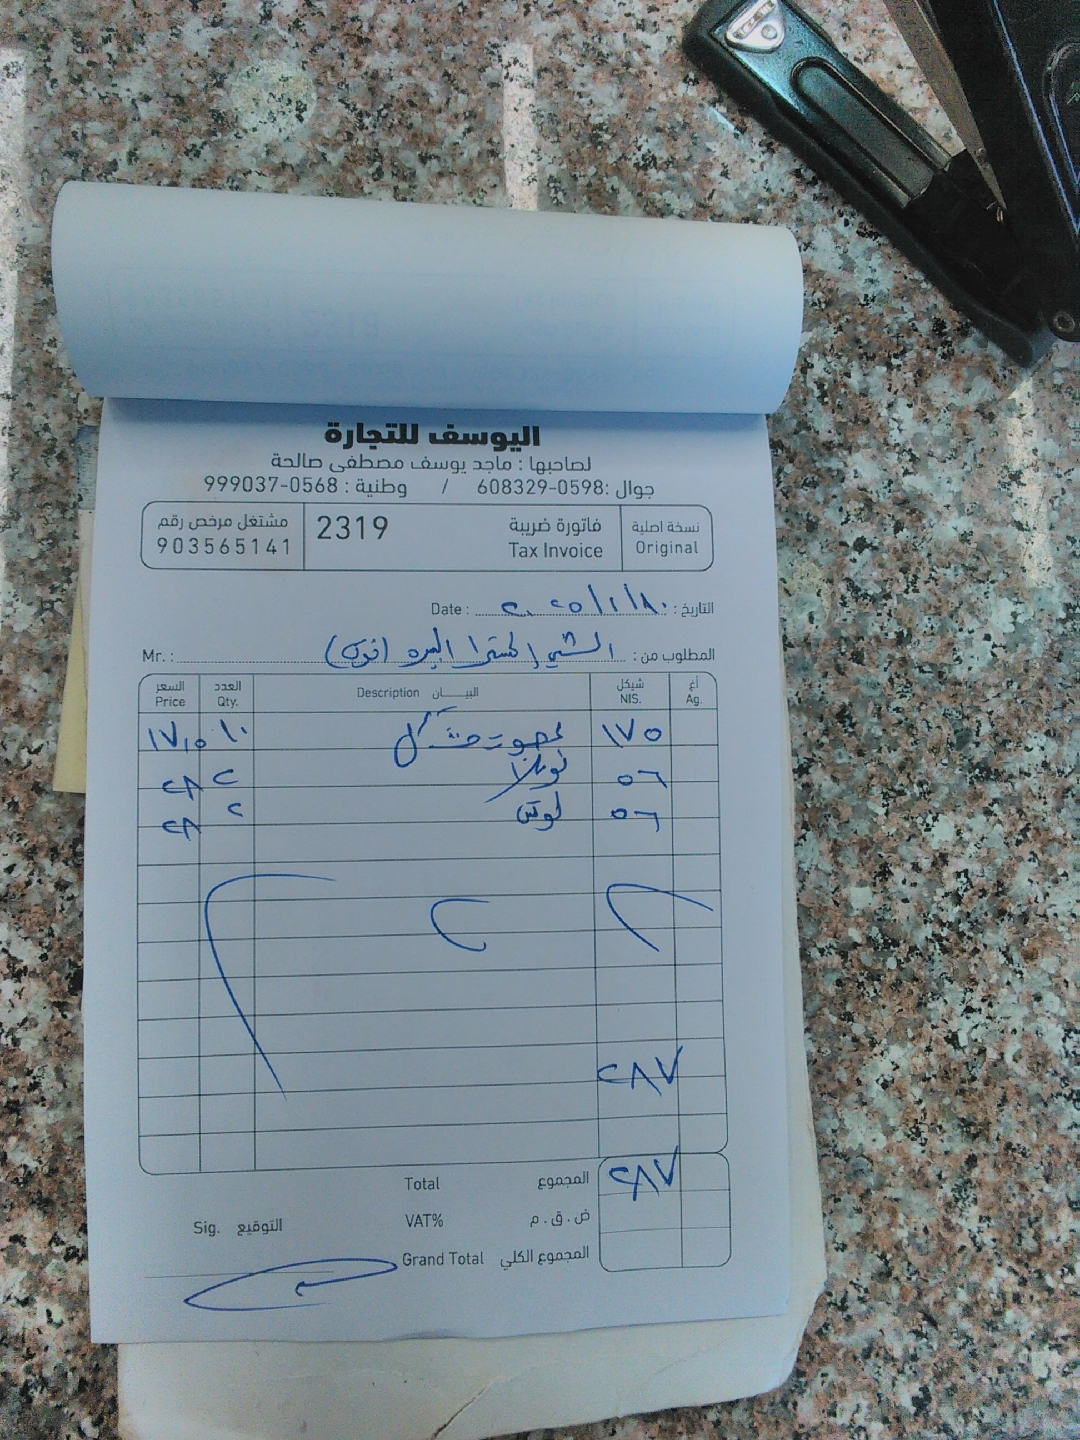 اليوسف للتجارة
لصاحبها : ماجد يوسف مصطفى صالحة
جوال :0598-608329 / وطنية : 0568-999037
نسخة اصلية فاتورة ضريبة 2319 مشتغل مرخص رقم
Original Tax Invoice 903565141
التاريخ : Date :
المطلوب من : Mr. :
أغ شيكل البيـــــان العدد السعر
Ag. NIS. Description Qty. Price
١٧٥ ١٠ ١٧,٥
٥٦ نوتيلا ٢ ٢٨
٥٦ لوتس ٢ ٢٨
٢٨٧
المجموع Total ٢٨٧
ض . ق . م VAT%
التوقيع Sig.
المجموع الكلي Grand Total